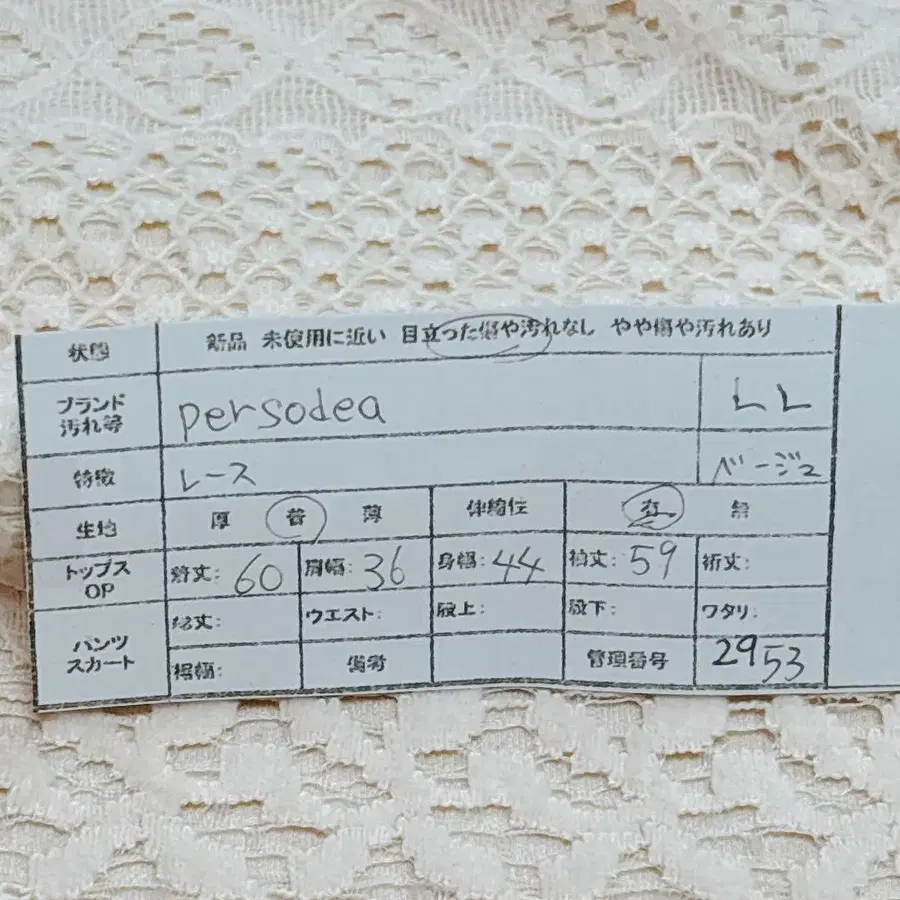 状態 新品 未使用に近い 目立った傷や汚れなし やや傷や汚れあり
ブランド 汚れ等 persodea LL
特徴 レース ベージュ
生地 厚 普 薄 伸縮性 有 無
トップス OP 着丈: 60 肩幅: 36 身幅: 44 袖丈: 59 裄丈:
パンツ スカート 総丈: ウエスト: 股上: 股下: ワタリ:
裾幅: 備考 管理番号 2953